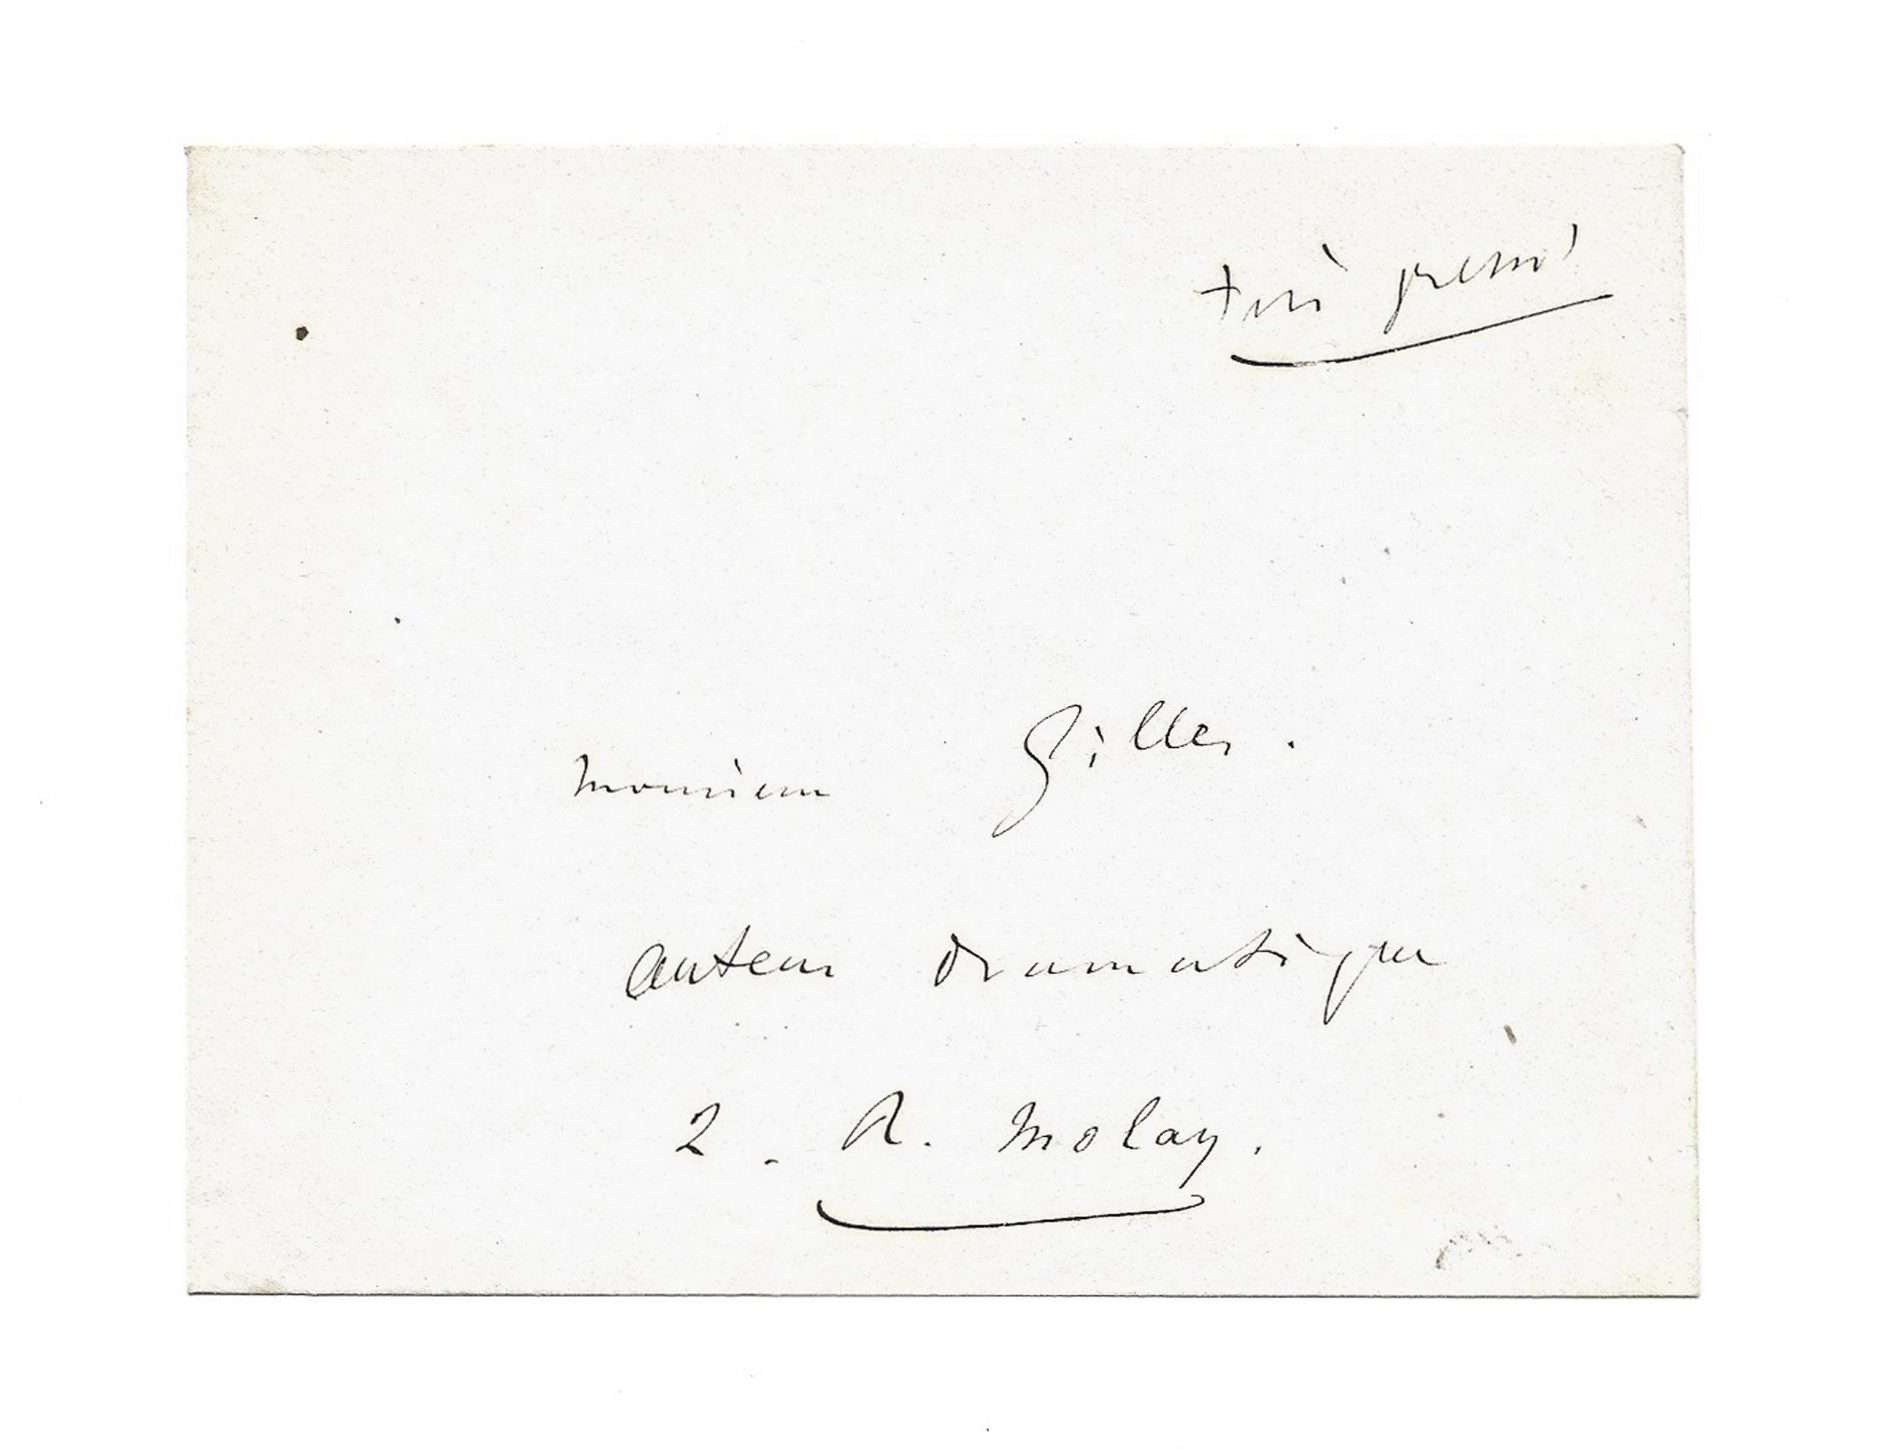 très pressé
Monsieur Gilles.
auteur dramatique
2. R. Molay.